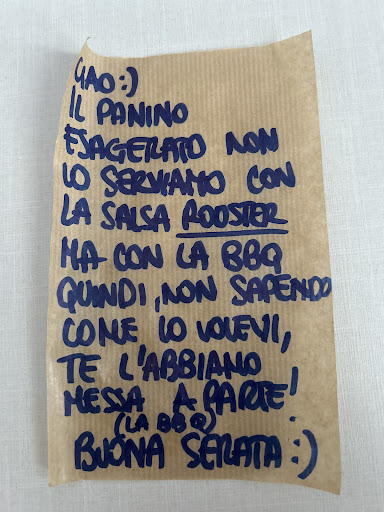 CIAO :)
IL PANINO
ESAGERATO NON
LO SERVIAMO CON
LA SALSA ROOSTER
MA CON LA BBQ
QUINDI, NON SAPENDO
COME LO VOLEVI,
TE L'ABBIAMO
MESSA A PARTE!
(LA BBQ)
BUONA SERATA :)